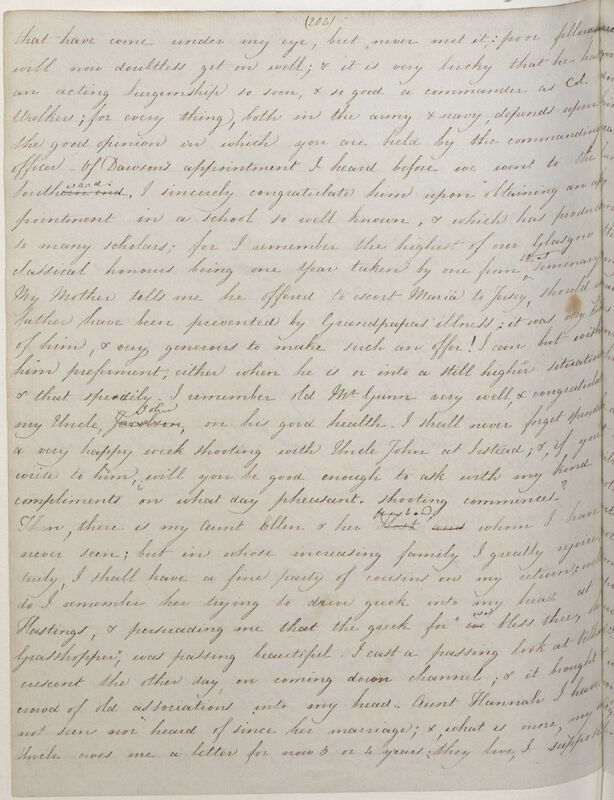 (202)
that have come under my eye, but never met it: poor fellow
will now doubtless get on well; & it is very lucky that he has
an acting Surgeonship so soon, & so good a commander as Col.
Walker; for every thing, both in the army & navy, depends upon
the good opinion in which you are held by the commanding
officer. Of Dawson's appointment I heard before we went to the
Southward. I sincerely congratulate him upon obtaining an ap
pointment in a school so well known, & which has produced
so many scholars; for I remember the highest of our Glasgow
classical honours being one year taken by one from that seminary
My Mother tells me he offered to escort Maria to Jersey, should
father have been prevented by Grandpapas illness; it was very kind
of him, & very generous to make such an offer! I can but wish
him preferment, either when he is or into a still higher situation
& that speedily. I remember old Mr Gunn very well, & congratulate
my Uncle, John, on his good health. I shall never forget spending
a very happy week shooting with Uncle John at Istead; & if you
write to him, will you be good enough to ask with my kind
compliments "on what day pheasant-shooting commences"?
Then, there is my Aunt Ellen & her husband whom I have
never seen; but in whose increasing family I greatly rejoice
truly, I shall have a fine party of cousins on my return: well
do I remember her trying to drive greek into my head at
Hastings, & persuading me that the greek for "we bless thee,
Grasshopper", was passing beautiful. I cast a passing look at
crescent the other day, on coming down channel; & it brought a
crowd of old associations into my head. Aunt Hannah I have
not seen nor heard of since her marriage; & what is more, my
Uncle owes me a letter for now 3 or 4 years: they live, I suppose